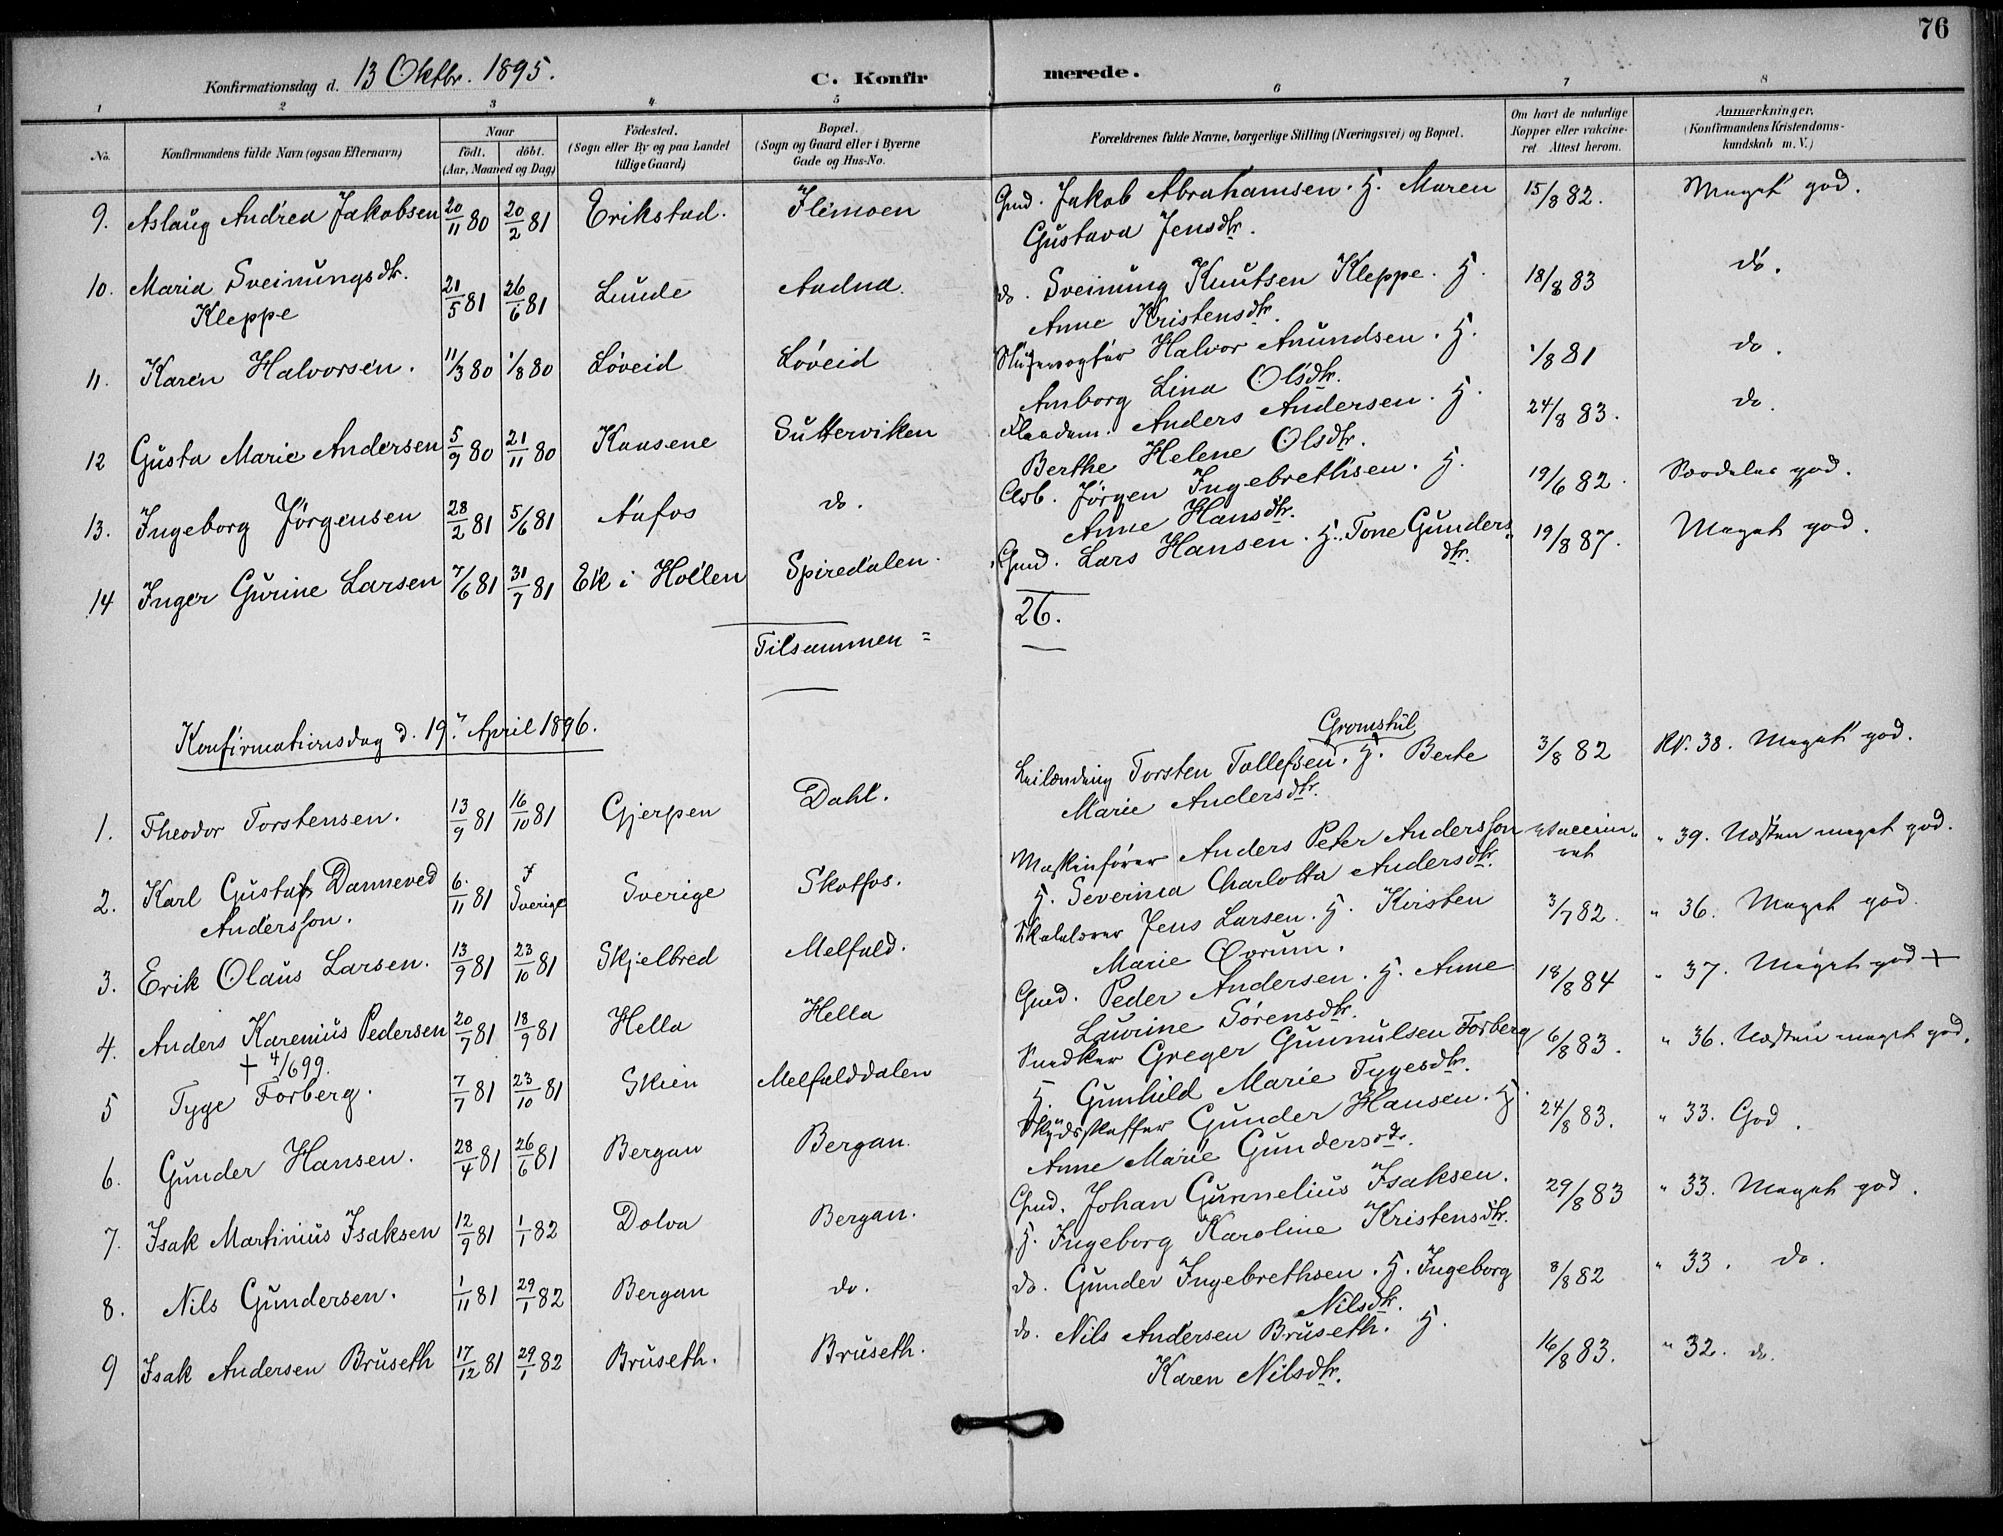 76
Konfirmationsdag d. 13 Oktbr. 1895.
C. Konfirmerede.
1 2 3 4 5 6 7 8
No. Konfirmandens fulde Navn (ogsaa Efternavn) Naar født. døbt. (Aar, Maaned og Dag) Fødested. (Sogn eller By og paa Landet tillige Gaard) Bopæl. (Sogn og Gaard eller i Byerne Gade og Hus-No. Forældrenes fulde Navne, borgerlige Stilling (Næringsvei) og Bopæl. Om havt de naturlige Kopper eller vakcineret. Attest herom. Anmærkninger. (Konfirmandens Kristendomskundskab m. V.)
9. Aslaug Andrea Jakobsen 20/11 80 20/2 81 Erikstad. Flimoen Gmd. Jakob Abrahamsen. H. Maren 15/8 82. Meget god.
Gustava Jensdtr.
10. Maria Sveinungsdtr. 21/5 81 26/6 81 Lunde Aadna do. Sveinung Knutsen Kleppe. H. 18/8 83 do.
Kleppe Anne Kristensdtr.
11. Karen Halvorsen. 11/3 80 1/8 80 Løveid Løveid Slusevogter Halvor Amundsen. H. 1/8 81 do.
Amborg Lina Olsdtr.
12 Gusta Marie Andersen 5/9 80 21/11 80 Kaasene Sutterviken Anders Andersen. H. 24/8 83. do.
Berthe Helene Olsdtr.
13. Ingeborg Jørgensen 28/2 81 5/6 81 Aafos do. Arb. Jørgen Ingebrethsen. H. 19/6 82. Særdeles god.
Anne Hansdtr.
14 Inger Gurine Larsen 7/6 81 31/7 81 Ek i Hollen Spiredalen. Gmd. Lars Hansen. H. Tone Gundersdtr. 19/8 87. Meget god.
Tilsammen = 26.
Konfirmationsdag d. 19. April 1896.
Gromstul
1. Theodor Torstensen. 13/9 81 16/10 81 Gjerpen Dahl. Leilænding Torsten Tollefsen. H. Berte 3/8 82 Kv. 38. Meget god.
Marie Andersdtr.
2. Karl Gustaf Danneved 6/11 81 i Sverige Sverige Skotfos. Maskinfører Anders Peter Andersson vaccineret " 39. Næsten meget god.
Andersson. H. Severina Charlotta Andersdtr.
3. Erik Olaus Larsen. 13/9 81 23/10 81 Skjelbred Melfald. Skolelærer Jens Larsen. H. Kirsten 3/7 82. " 36. Meget god.
Marie Øvrum.
4. Anders Karenius Pedersen 20/7 81 18/9 81 Hella Hella Gmd. Peder Andersen. H. Anne 18/8 84 " 37. Meget god +
+ 4/6 99. Laurine Sørensdtr.
5 Tyge Forberg. 7/7 81 23/10 81 Skien Melfalddalen Snedker Greger Gunnulsen Forberg 6/8 83. " 36. Næsten meget god.
H. Gunhild Marie Tygesdtr.
6. Gunder Hansen. 28/4 81 26/6 81 Bergan Bergan. Skydsskaffer Gunder Hansen. H. 24/8 83. " 33. God.
Anne Marie Gundersdtr.
7. Isak Martinius Isaksen 12/9 81 1/1 82 Dolva Bergan. Gmd. Johan Gunnelius Isaksen. 29/8 83 " 33. Meget god.
H. Ingeborg Karoline Kristensdtr.
8. Nils Gundersen. 1/11 81 29/1 82 Bergan do. do. Gunder Ingebrethsen. H. Ingeborg 8/8 82 " 33. do.
Nilsdtr.
9 Isak Andersen Bruseth 17/12 81 29/1 82 Bruseth. Bruseth. do. Nils Andersen Bruseth. H. 16/8 83. " 32. do.
Karen Nilsdtr.